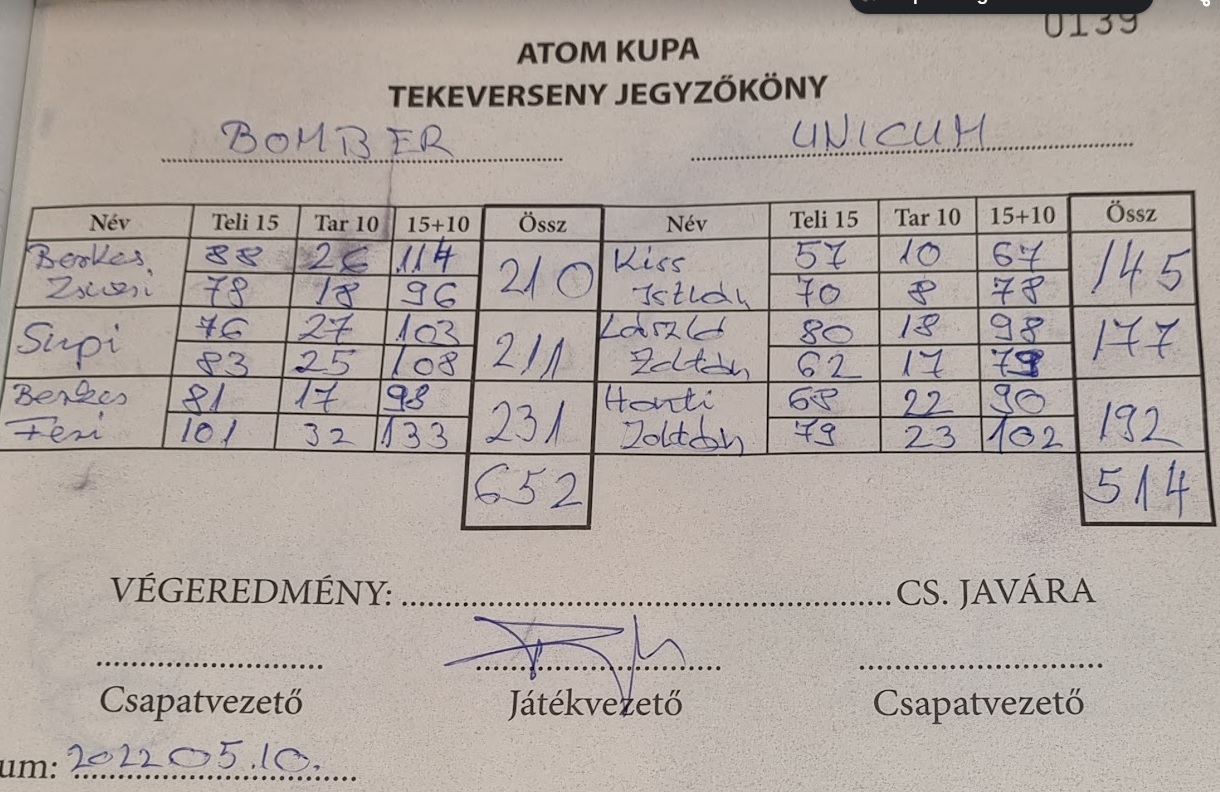 0139
ATOM KUPA
TEKEVERSENY JEGYZŐKÖNY
BOMBER UNICUM
Név Teli 15 Tar 10 15+10 Össz Név Teli 15 Tar 10 15+10 Össz
Berkes 88 26 114 210 Kiss 57 10 67 145
Zsuzsi 78 18 96 István 70 8 78
Supi 76 27 103 211 László 80 18 98 177
83 25 108 Zoltán 62 17 79
Berkes 81 17 98 231 Harti 68 22 90 192
Feri 101 32 133 Zoltán 79 23 102
652 514
VÉGEREDMÉNY: CS. JAVÁRA
Csapatvezető Játékvezető Csapatvezető
um: 2022 05.10.